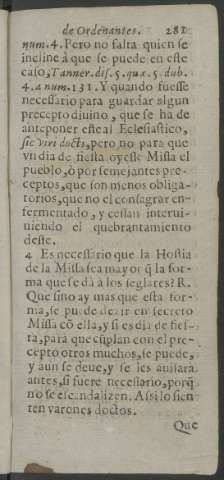 de Ordenantes. 281
num. 4. Pero no falta quien se
incline à que se puede en este
caso, Tanner. dis. 5. quæ. 5. dub.
4. à num. 131. Y quando fuesse
necessario para guardar algun
precepto diuino, que se ha de
anteponer este al Eclesiastico,
sic viri docti, pero no para que
vn dia de fiesta oyesse Missa el
pueblo, ò por semejantes pre-
ceptos, que son menos obliga-
torios, que no el consagrar en-
fermentado, y cessan interui-
niendo el quebrantamiento
deste.
4 Es necessario que la Hostia
de la Missa sea mayor q̃ la for-
ma que se dà à los seglares? R.
Que sino ay mas que esta for-
ma, se puede dezir en secreto
Missa cõ ella, y si es dia de fies-
ta, para que cũplan con el pre-
cepto otros muchos, se puede,
y aun se deue, y se les auisarà
antes, si fuere necessario, porq̃
no se escandalizen. Assi lo sien
ten varones doctos.
Que